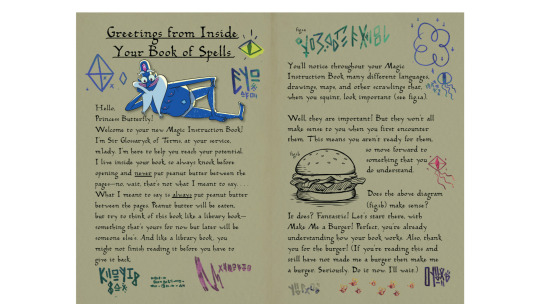 Greetings from Inside
Your Book of Spells
Hello,
Princess Butterfly!
Welcome to your new Magic Instruction Book!
I'm Sir Glossaryck of Terms, at your service,
m'lady. I'm here to help you reach your potential.
I live inside your book, so always knock before
opening and never put peanut butter between the
pages—no, wait, that's not what I meant to say. . . .
What I meant to say is always put peanut butter
between the pages. Peanut butter will be eaten,
but try to think of this book like a library book—
something that's yours for now but later will be
someone else's. And like a library book, you
might not finish reading it before you have to
give it back.
fig.a
You'll notice throughout your Magic
Instruction Book many different languages,
drawings, maps, and other scrawlings that,
when you squint, look important (see fig.a).
Well, they are important! But they won't all
make sense to you when you first encounter
them. This means you aren't ready for them,
so move forward to
something that you
do understand.
fig.b
Does the above diagram
(fig.b) make sense?
It does? Fantastic! Let's start there, with
Make Me a Burger! Perfect, you're already
understanding how your book works. Also, thank
you for the burger! (If you're reading this and
still have not made me a burger then make me
a burger. Seriously. Do it now. I'll wait.)